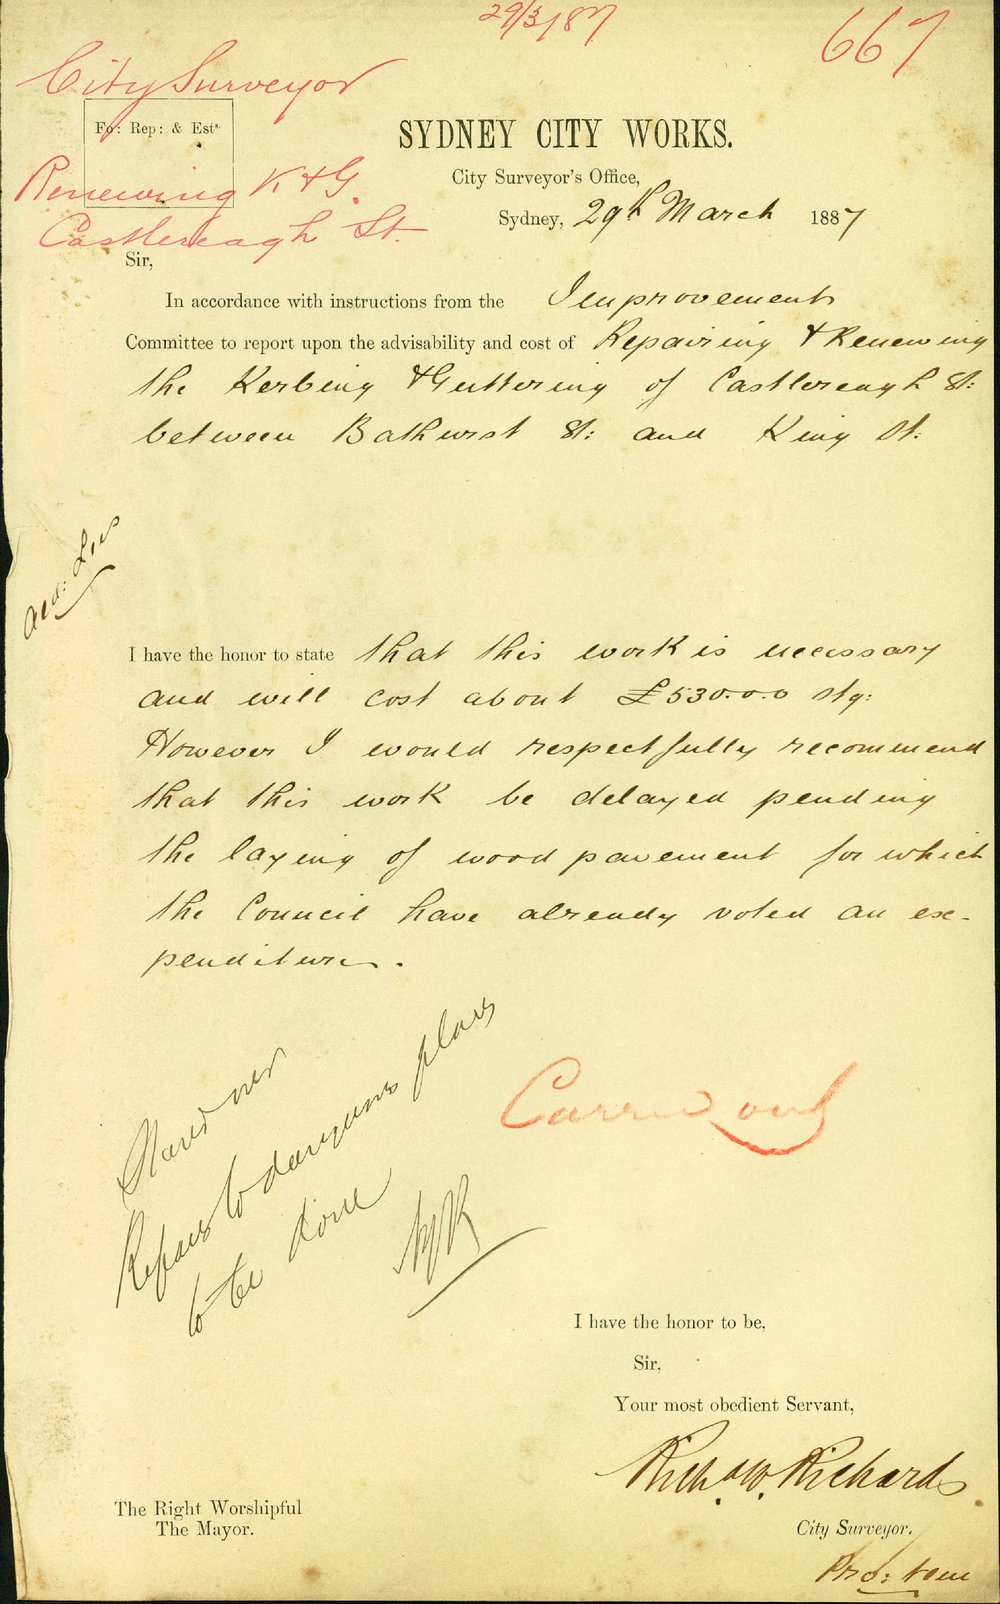 29/3/87
667
City Surveyor
Fo: Rep: & Ests.
Renewing K & G.
Castlereagh St.
SYDNEY CITY WORKS.
City Surveyor's Office,
Sydney, 29th March 1887
Sir,
In accordance with instructions from the Improvement
Committee to report upon the advisability and cost of Repairing & Renewing
the Kerbing & Guttering of Castlereagh St:
between Bathurst St: and King St:
Ald: Lees
I have the honor to state that this work is necessary
and will cost about £530.0.0 stg:
However I would respectfully recommend
that this work be delayed pending
the laying of wood pavement for which
the Council have already voted an ex-
penditure.
Stand over
Repairs to dangerous places
to be done
Carried out
I have the honor to be,
Sir,
Your most obedient Servant,
Richd. W. Richards
City Surveyor.
Pro: tem
The Right Worshipful
The Mayor.